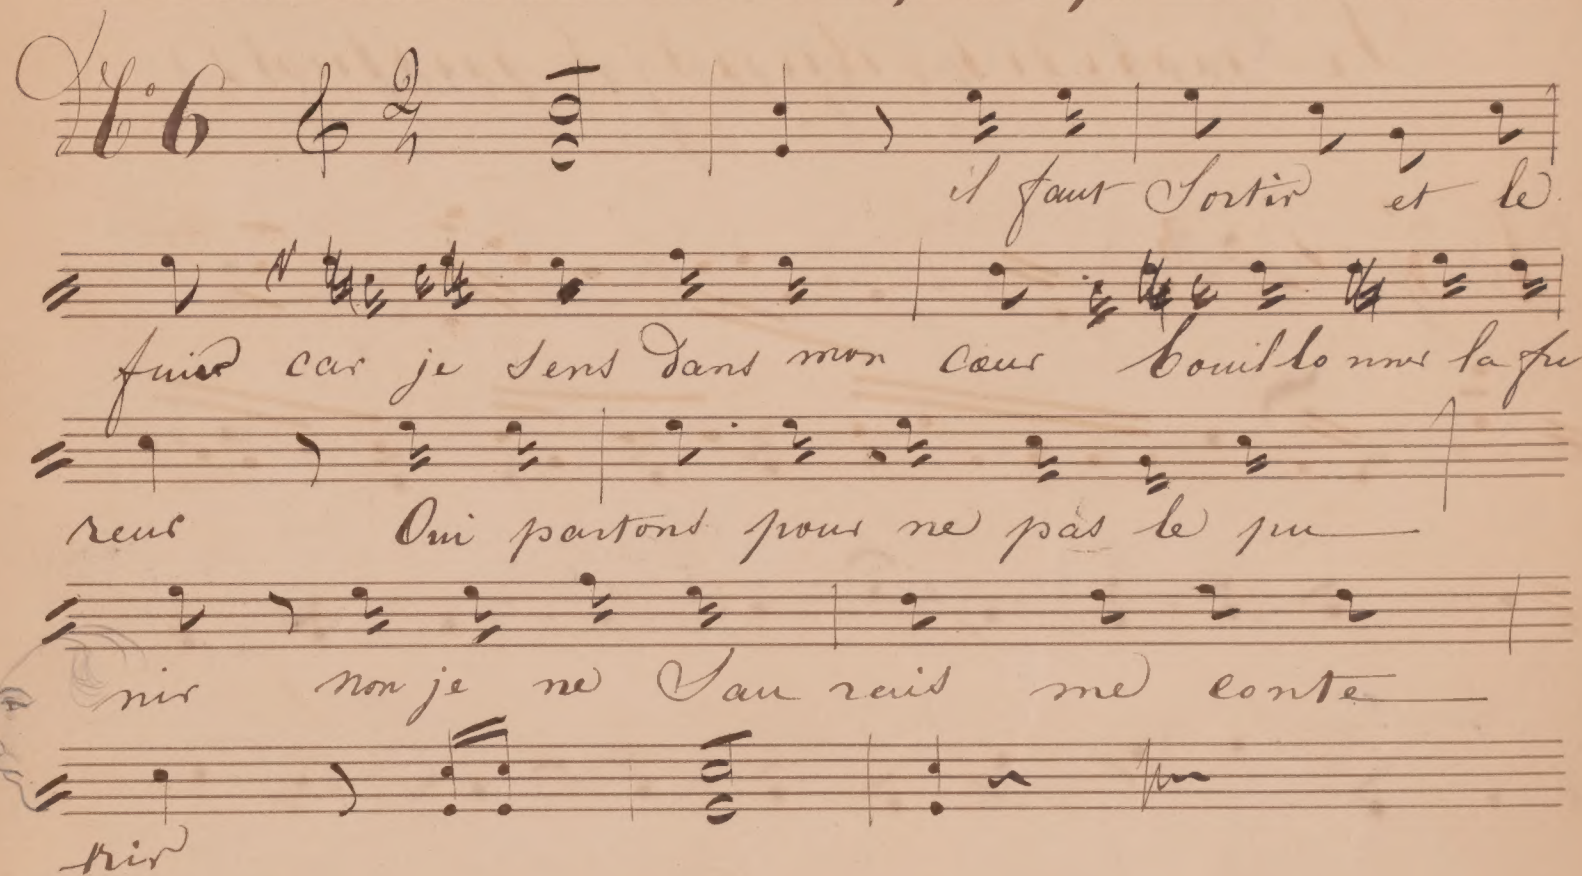 N° 6 2/4
il faut Sortir et le
fuir car je sens dans mon cœur bouillonner la fu
reur Oui partons pour ne pas le pu
nir non je ne Sau rais me conte
nir